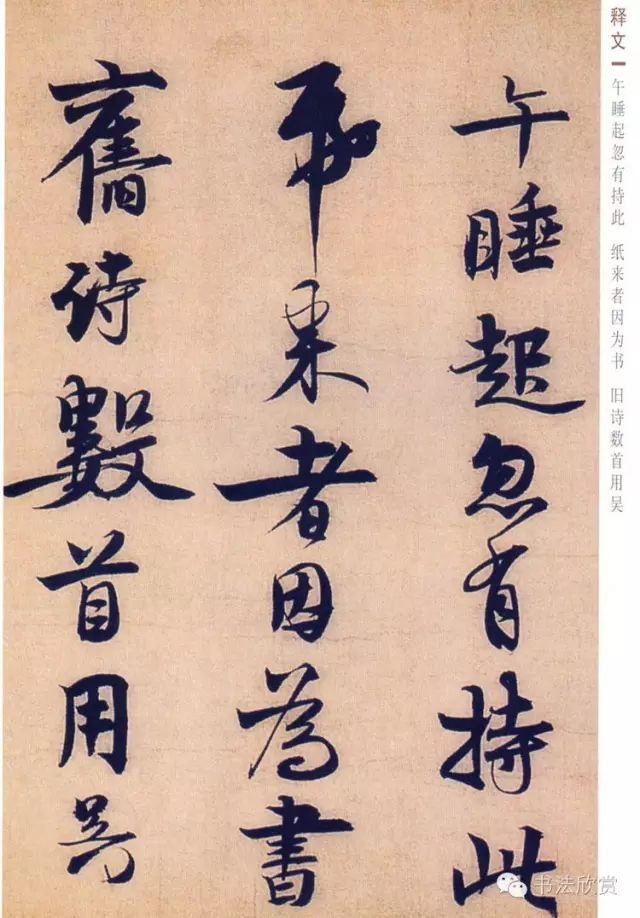 午睡起忽有持此
帋来者因為書
舊诗數首用吴
释文
午睡起忽有持此 纸来者因为书 旧诗数首用吴
书法欣赏